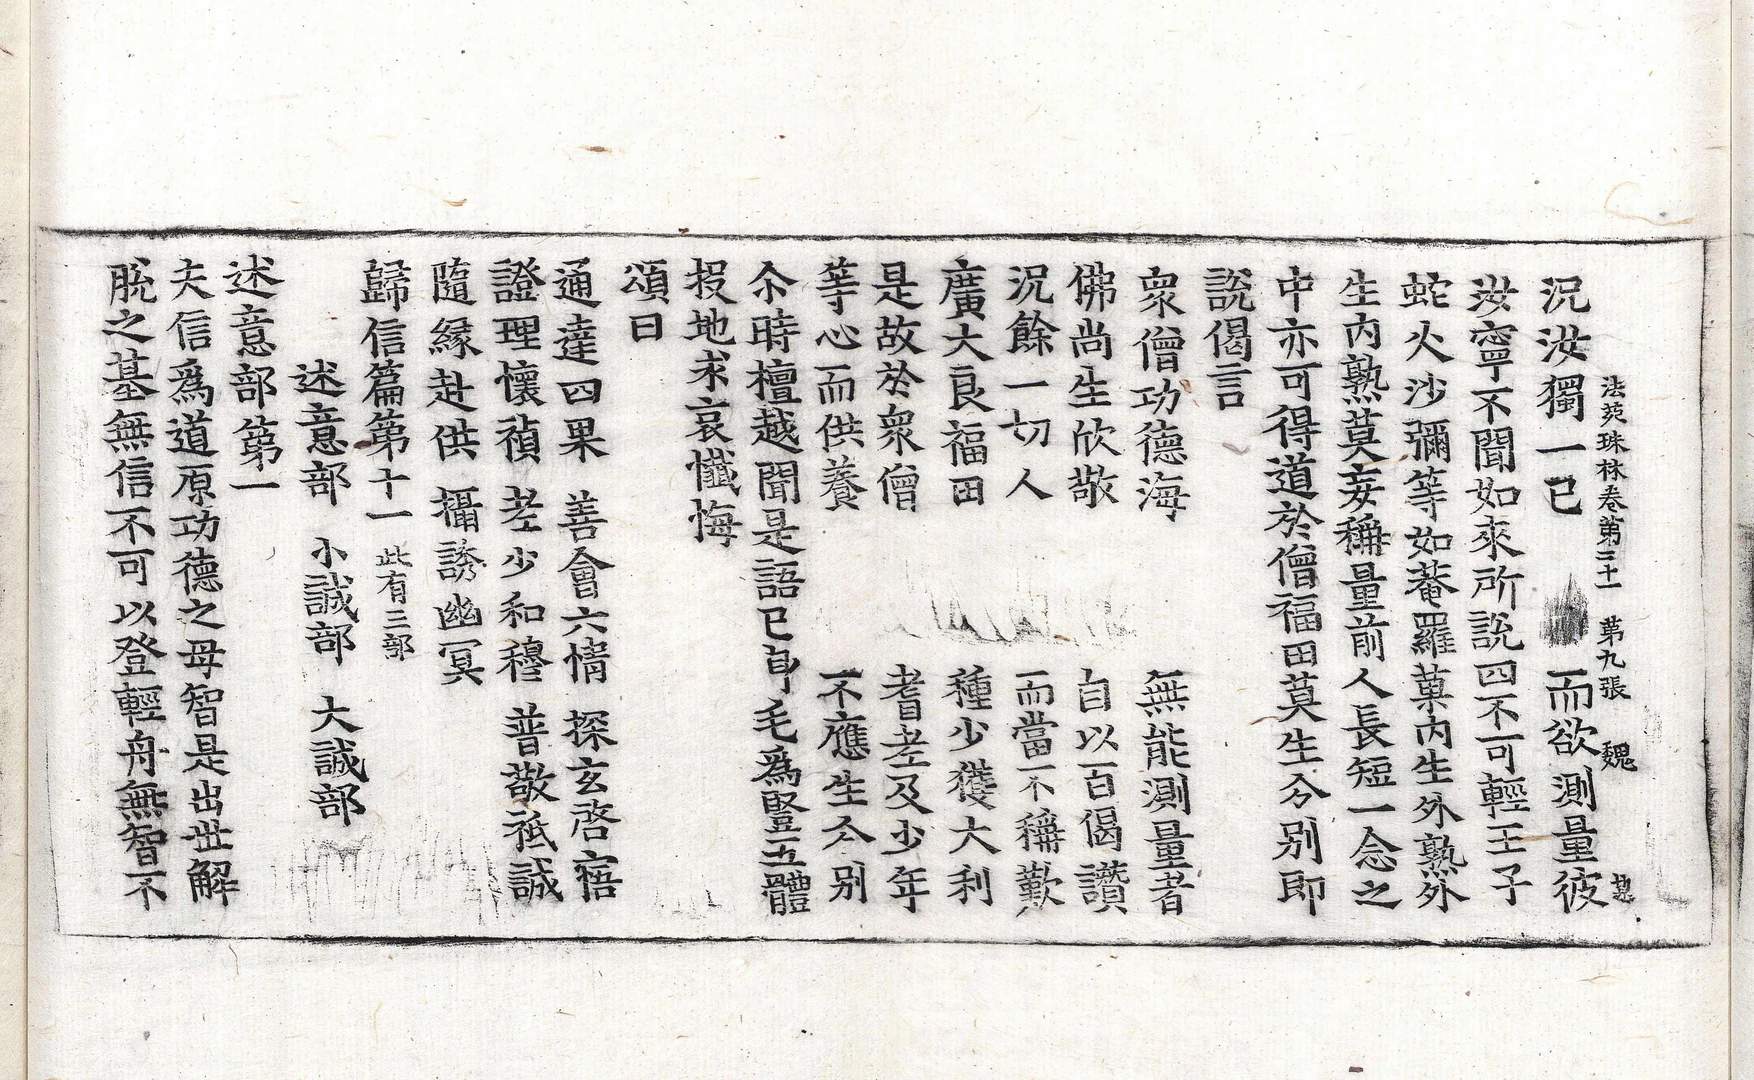 法苑珠林卷第二十一　第九張　魏
况汝獨一己　而欲測量彼
汝寧不聞如來所說四不可輕王子
蛇火沙彌等如菴羅菓内生外熟外
生内熟莫妄稱量前人長短一念之
中亦可得道於僧福田莫生分别即
說偈言
衆僧功德海　無能測量者
佛尚生欣敬　自以百偈讚
況餘一切人　而當不稱歎
廣大良福田　種少獲大利
是故於衆僧　耆老及少年
等心而供養　不應生分别
尒時檀越聞是語已身毛爲豎五體
投地求哀懺悔
頌曰
通達四果　善會六情　探玄啓寤
證理懷禎　老少和穆　普敬祗誠
隨緣赴供　攝誘幽冥
歸信篇第十一 此有三部
述意部　小誠部　大誠部
述意部第一
夫信爲道原功德之母智是出世解
脫之基無信不可以登輕舟無智不